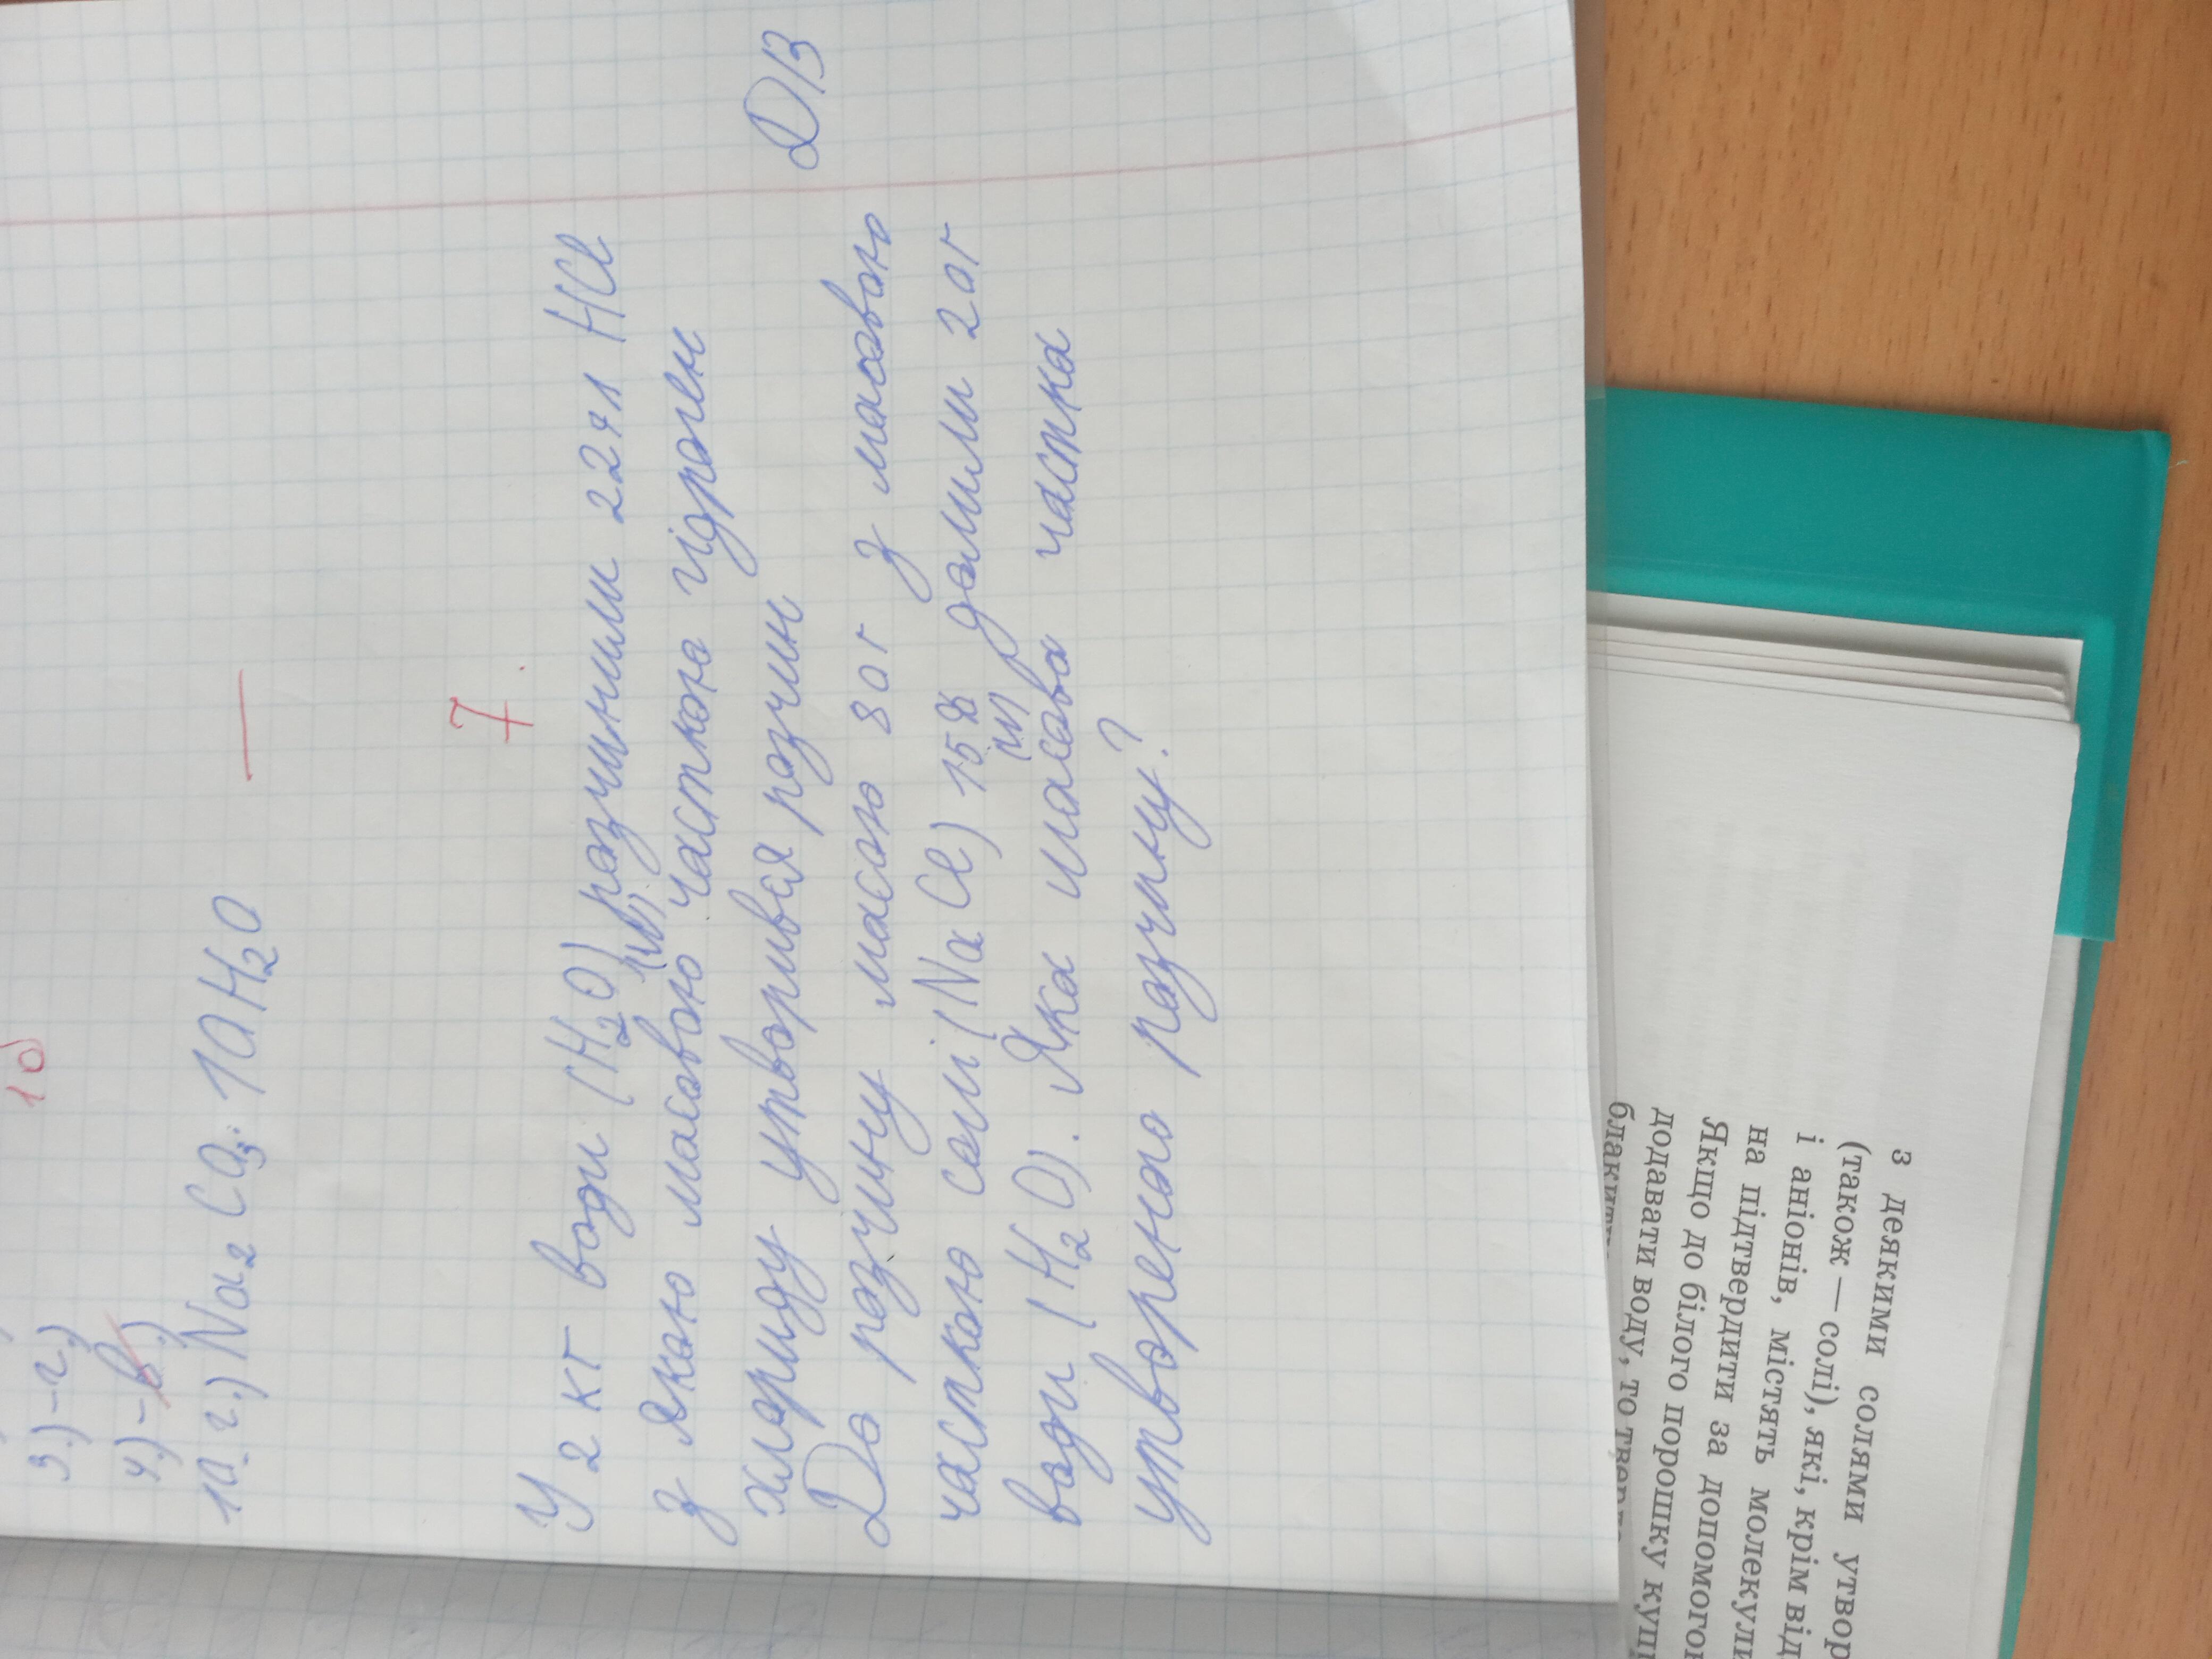 10
3.) – г.)
4.) – в.)
10. г.) Na₂CO₃·10H₂O
7.
У 2 кг води (H₂O) розчинили 224 л HCl
(W)
з якою масовою часткою гідроген
хлориду утворився розчин ДЗ
До розчину масою 80 г з масовою
часткою солі (NaCl) 15% долили 20г
(W)
води (H₂O). Яка масова частка
утвореного розчину?
з деякими солями утвор
(також — солі), які, крім від
і аніонів, містять молекули
на підтвердити за допомогою
Якщо до білого порошку купр
додавати воду, то